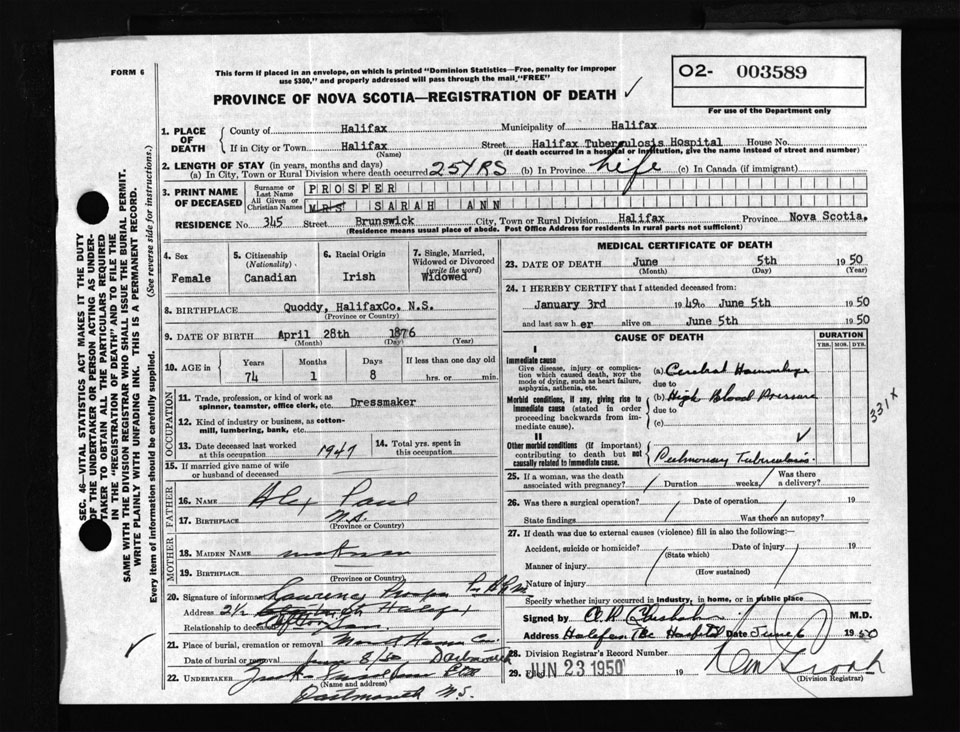 FORM 6
This form if placed in an envelope, on which is printed "Dominion Statistics—Free, penalty for improper
use $300," and properly addressed will pass through the mail "FREE"
O2- 003589
For use of the Department only
PROVINCE OF NOVA SCOTIA—REGISTRATION OF DEATH ✓
1. PLACE OF DEATH
County of Halifax Municipality of Halifax
If in City or Town Halifax (Name) Street Halifax Tuberculosis Hospital House No.
(If death occurred in a hospital or institution, give the name instead of street and number)
2. LENGTH OF STAY (in years, months and days)
(a) In City, Town or Rural Division where death occurred 25 YRS (b) In Province Life (c) In Canada (if immigrant)
3. PRINT NAME OF DECEASED
Surname or Last Name PROSPER
All Given or Christian Names MRS SARAH ANN
RESIDENCE No. 345 Street Brunswick City, Town or Rural Division Halifax Province Nova Scotia.
(Residence means usual place of abode. Post Office Address for residents in rural parts not sufficient)
4. Sex Female
5. Citizenship (Nationality) Canadian
6. Racial Origin Irish
7. Single, Married, Widowed or Divorced (write the word) Widowed
8. BIRTHPLACE Quoddy, HalifaxCo. N.S.
(Province or Country)
9. DATE OF BIRTH April 28th 1876
(Month) (Day) (Year)
10. AGE in Years 74 Months 1 Days 8 If less than one day old hrs. or min.
OCCUPATION
11. Trade, profession, or kind of work as spinner, teamster, office clerk, etc. Dressmaker
12. Kind of industry or business, as cotton-mill, lumbering, bank, etc.
13. Date deceased last worked at this occupation 1947
14. Total yrs. spent in this occupation
15. If married give name of wife or husband of deceased
FATHER
16. NAME Alex Paul
17. BIRTHPLACE N.S.
(Province or Country)
MOTHER
18. MAIDEN NAME
19. BIRTHPLACE
(Province or Country)
20. Signature of informant Lawrence Prosper
Address 2½ St Halifax
Relationship to deceased
21. Place of burial, cremation or removal
Date of burial or removal June 8/50 Dartmouth
22. UNDERTAKER
(Name and address)
Dartmouth N.S.
MEDICAL CERTIFICATE OF DEATH
23. DATE OF DEATH June 5th 1950
(Month) (Day) (Year)
24. I HEREBY CERTIFY that I attended deceased from:
January 3rd 1949 to June 5th 1950
and last saw her alive on June 5th 1950
CAUSE OF DEATH
DURATION
YRS. MOS. DYS.
I
Immediate cause
Give disease, injury or complication which caused death, NOT the mode of dying, such as heart failure, asphyxia, asthenia, etc.
(a) Cerebral Haemorrhage
due to
Morbid conditions, if any, giving rise to immediate cause (stated in order proceeding backwards from immediate cause).
(b) High Blood Pressure
due to
(c)
331x
II
Other morbid conditions (if important) contributing to death but not causally related to immediate cause.
✓
Pulmonary Tuberculosis.
25. If a woman, was the death associated with pregnancy? Duration weeks Was there a delivery?
26. Was there a surgical operation? Date of operation 19
State findings Was there an autopsy?
27. If death was due to external causes (violence) fill in also the following:
Accident, suicide or homicide? Date of injury 19
(State which)
Manner of injury
(How sustained)
Nature of injury
Specify whether injury occurred in industry, in home, or in public place
Signed by M.D.
Address Halifax Tbc Hospital Date June 6 1950
28. Division Registrar's Record Number
29. JUN 23 1950 19
(Division Registrar)
SEC. 46—VITAL STATISTICS ACT MAKES IT THE DUTY
OF THE UNDERTAKER OR PERSON ACTING AS UNDER-
TAKER TO OBTAIN ALL THE PARTICULARS REQUIRED
IN THE "REGISTRATION OF DEATH" AND TO FILE THE
SAME WITH THE DIVISION REGISTRAR WHO SHALL ISSUE THE BURIAL PERMIT.
WRITE PLAINLY WITH UNFADING INK. THIS IS A PERMANENT RECORD.
Every item of information should be carefully supplied. (See reverse side for instructions.)
✓